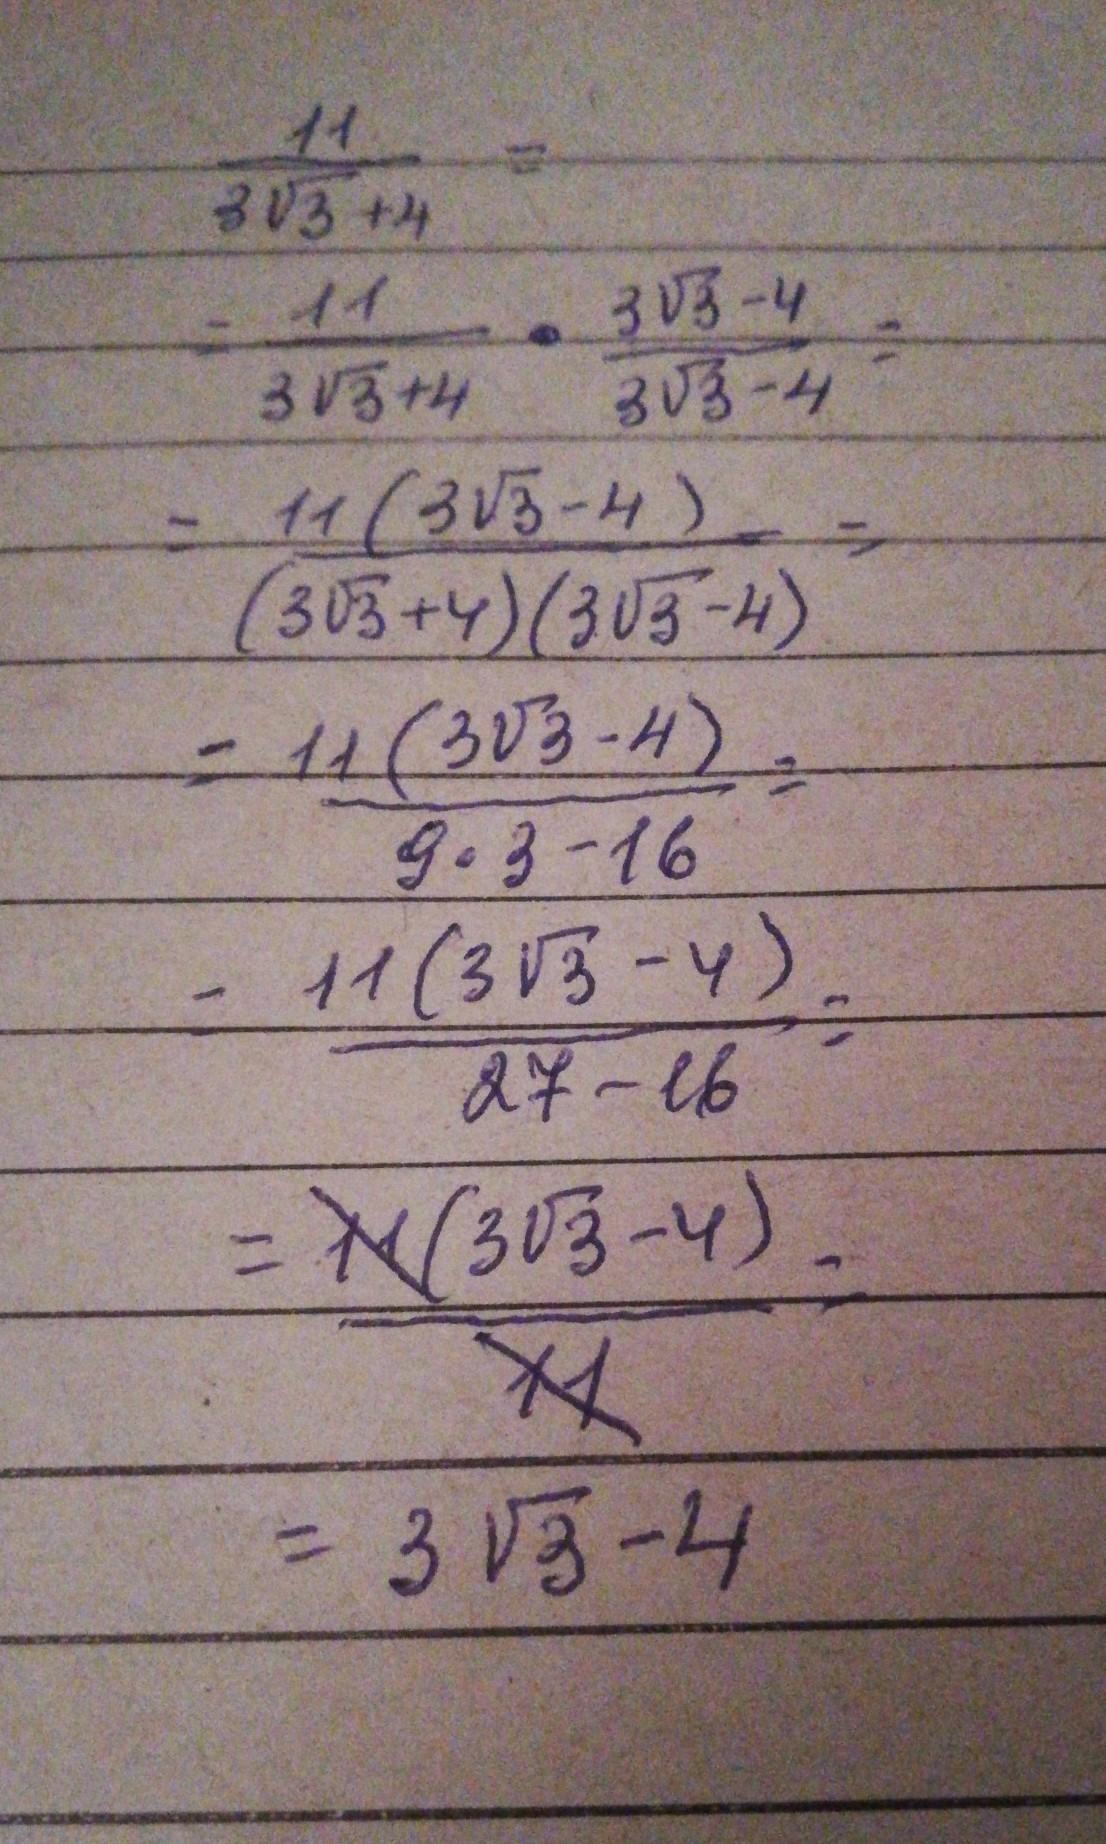 11/(3√3+4) =
= 11/(3√3+4) • (3√3-4)/(3√3-4) =
= 11(3√3-4)/((3√3+4)(3√3-4)) =
= 11(3√3-4)/(9•3-16) =
= 11(3√3-4)/(27-16) =
= 11(3√3-4)/11 =
= 3√3-4